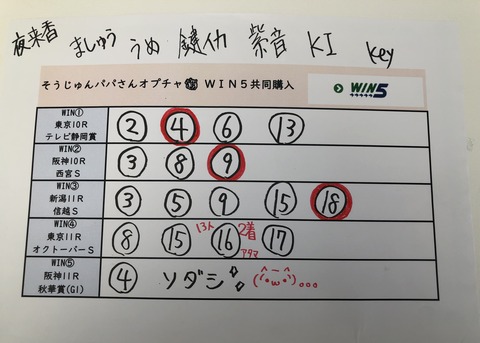 夜来香 ましゅう うぬ 鍵仂 紫音 KI key
そうじゅんパパさんオプチャ WIN5共同購入 WIN5
WIN①
東京10R
テレビ静岡賞
② ④ ⑥ ⑬
WIN②
阪神10R
西宮S
③ ⑧ ⑨
WIN③
新潟11R
信越S
③ ⑤ ⑨ ⑮ ⑱
WIN④
東京11R
オクトーバーS
⑧ ⑮ 13人 ⑯ 2着 アタマ ⑰
WIN⑤
阪神11R
秋華賞(G1)
④ ソダシ (^・ω・^)...